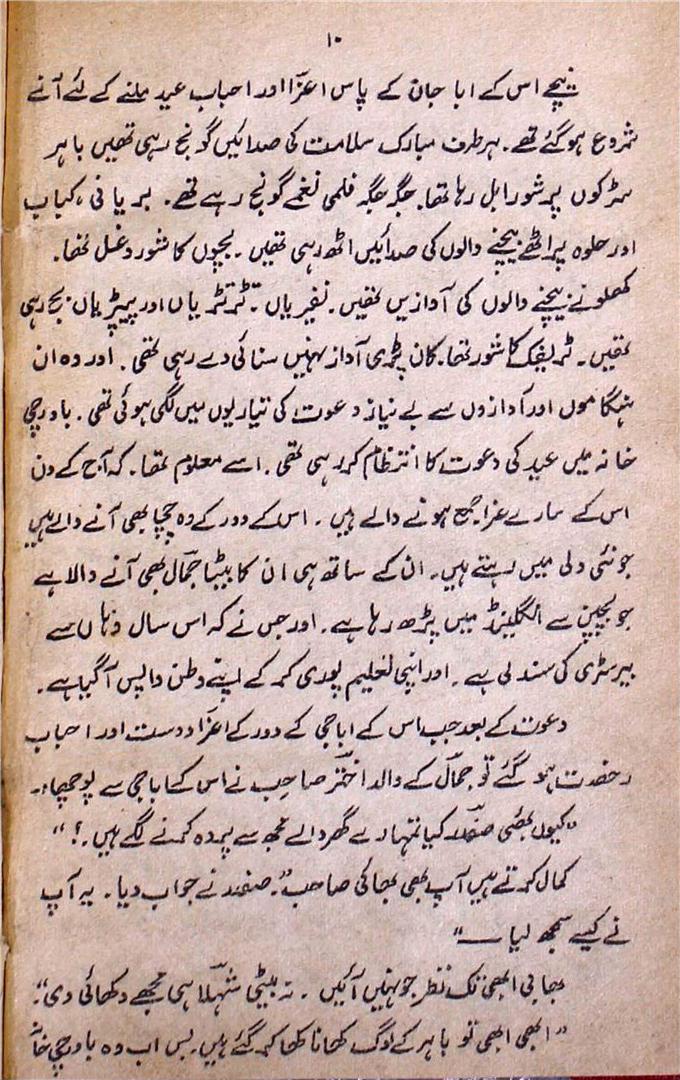 ۱۰
نیچے اس کے ابا جان کے پاس اعزّا اور احباب عید ملنے کے لئے آنے
شروع ہو گئے تھے۔ ہر طرف مبارک سلامت کی صدائیں گونج رہی تھیں باہر
سڑکوں پر شور ابل رہا تھا۔ جگہ جگہ فلمی نغمے گونج رہے تھے۔ بریانی، کباب
اور حلوہ پراٹھے بیچنے والوں کی صدائیں اٹھ رہی تھیں۔ بچوں کا شور و غل تھا۔
کھلونے بیچنے والوں کی آوازیں تھیں۔ نفیریاں۔ ٹرٹریاں اور پیپڑیاں بج رہی
تھیں۔ ٹریفک کا شور تھا۔ کان پڑی آواز نہیں سنائی دے رہی تھی۔ اور وہ ان
ہنگاموں اور آوازوں سے بے نیاز دعوت کی تیاریوں میں لگی ہوئی تھی۔ باورچی
خانہ میں عید کی دعوت کا انتظام کر رہی تھی۔ اسے معلوم تھا۔ کہ آج کے دن
اس کے سارے عزا جمع ہونے والے ہیں۔ اس کے دور کے وہ چچا بھی آنے والے ہیں
جو نئی دلی میں رہتے ہیں۔ ان کے ساتھ ہی ان کا بیٹا جمالؔ بھی آنے والا ہے
جو بچپن سے انگلینڈ میں پڑھ رہا ہے۔ اور جس نے کہ اس سال وہاں سے
بیرسٹری کی سند لی ہے۔ اور اپنی تعلیم پوری کر کے اپنے وطن واپس آ گیا ہے۔
دعوت کے بعد جب اس کے ابا جی کے دور کے اعزّا دوست اور احباب
رخصت ہو گئے تو جمالؔ کے والد اخترؔ صاحب نے اس کے ابا جی سے پوچھا:۔
"کیوں بھئی صفدرؔ کیا تمہارے گھر والے مجھ سے پردہ کرنے لگے ہیں۔؟"
کمال کرتے ہیں آپ بھی بھائی صاحب"۔ صفدر نے جواب دیا۔ یہ آپ
نے کیسے سمجھ لیا ــــ"
بھابی ابھی تک نظر جو نہیں آئیں۔ نہ بیٹی شہلاؔ ہی مجھے دکھائی دی"۔
"ابھی ابھی تو باہر کے لوگ کھانا کھا کر گئے ہیں۔ بس اب وہ باورچی خانہ